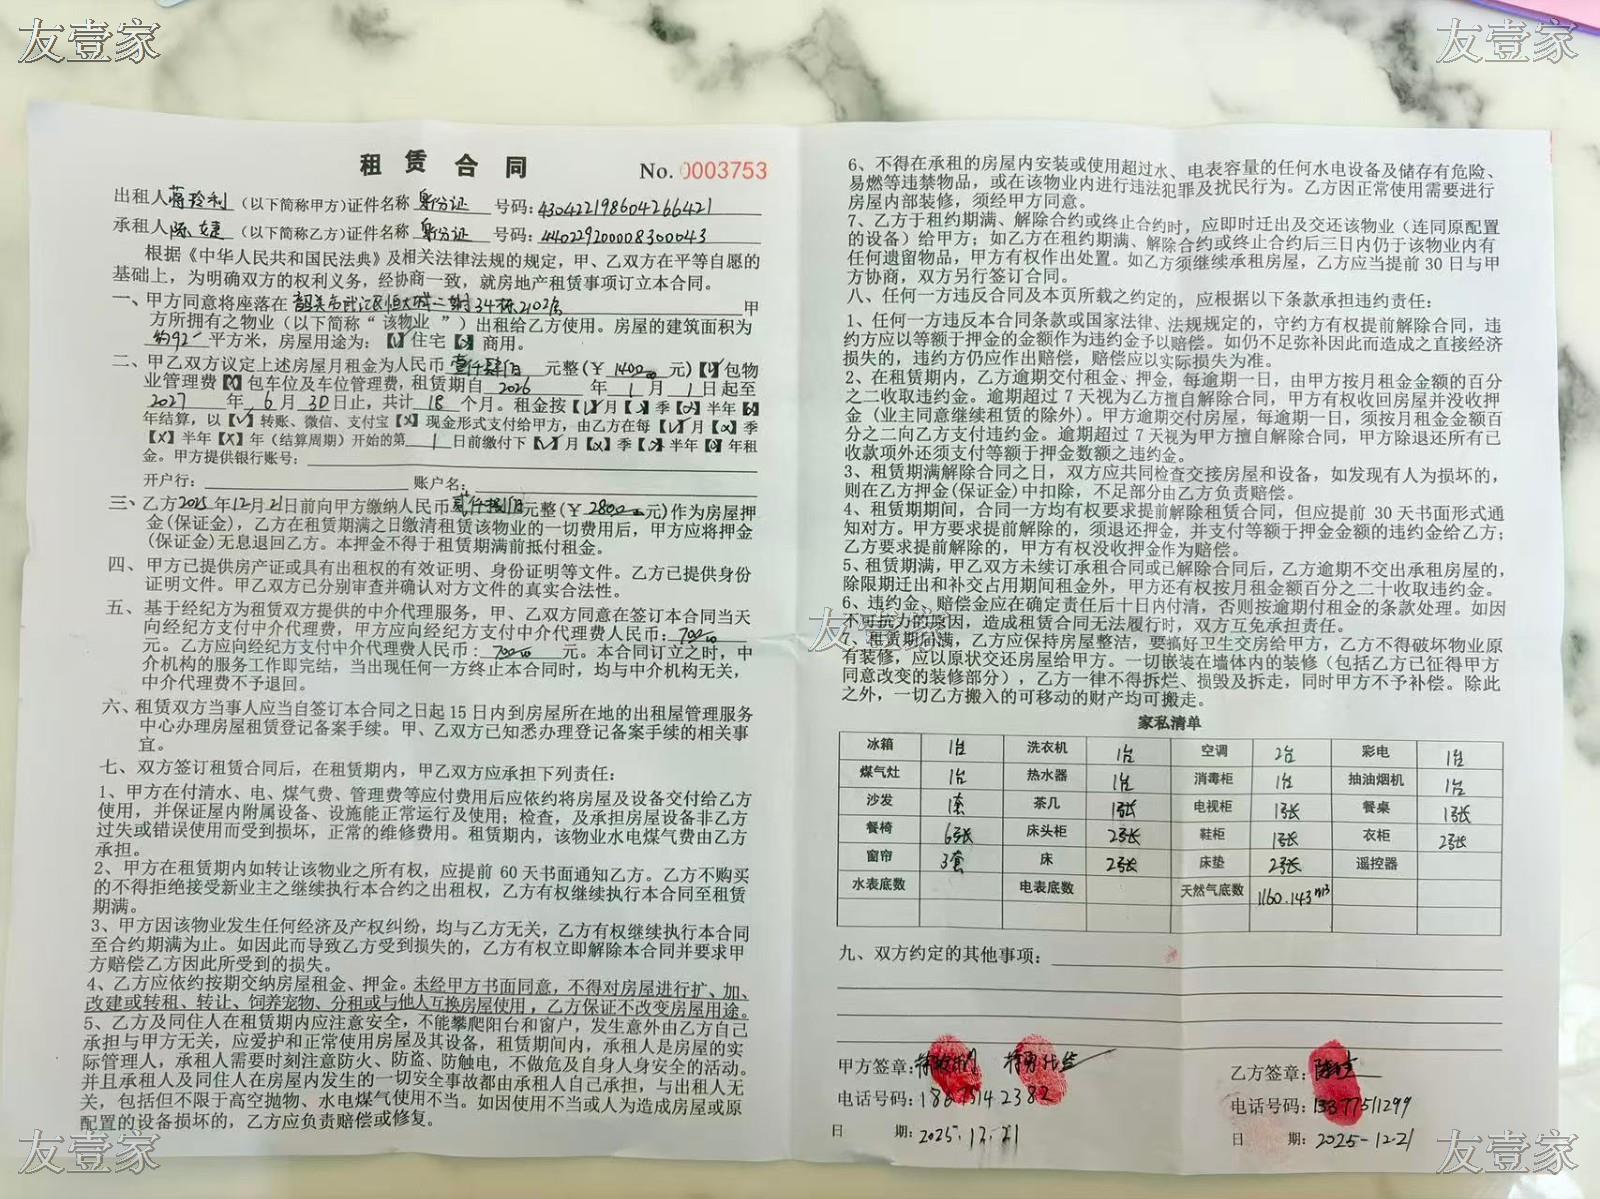 友壹家
友壹家
租赁合同 No.0003753
出租人蒋玲利（以下简称甲方）证件名称 身份证 号码：430422198604266421
承租人陈 （以下简称乙方）证件名称 身份证 号码：440229200008300043
根据《中华人民共和国民法典》及相关法律法规的规定，甲、乙双方在平等自愿的
基础上，为明确双方的权利义务，经协商一致，就房地产租赁事项订立本合同。
一、甲方同意将座落在 韶关市武江区恒大城二期34栋2102房 甲
方所拥有之物业（以下简称“该物业 ”）出租给乙方使用。房屋的建筑面积为
约92 平方米，房屋用途为：【√】住宅【×】商用。
二、甲乙双方议定上述房屋月租金为人民币 壹仟肆佰 元整(￥ 1400.00 元)【√】包物
业管理费【×】包车位及车位管理费，租赁期自 2026 年 1 月 1 日起至
2027 年 6 月 30 日止，共计 18 个月。租金按【√】月【×】季【×】半年【×】
年结算，以【√】转账、微信、支付宝【×】现金形式支付给甲方，由乙方在每【√】月【×】季
【×】半年【×】年（结算周期）开始的第 1 日前缴付下【√】月【×】季【×】半年【×】年租
金。甲方提供银行账号：
开户行： 账户名：
三、乙方2025年12月21日前向甲方缴纳人民币贰仟捌佰元整(￥2800.00元)作为房屋押
金(保证金)，乙方在租赁期满之日缴清租赁该物业的一切费用后，甲方应将押金
(保证金)无息退回乙方。本押金不得于租赁期满前抵付租金。
四、甲方已提供房产证或具有出租权的有效证明、身份证明等文件。乙方已提供身份
证明文件。甲乙双方已分别审查并确认对方文件的真实合法性。
五、基于经纪方为租赁双方提供的中介代理服务，甲、乙双方同意在签订本合同当天
向经纪方支付中介代理费，甲方应向经纪方支付中介代理费人民币：700.00
元。乙方应向经纪方支付中介代理费人民币：700.00 元。本合同订立之时，中
介机构的服务工作即完结，当出现任何一方终止本合同时，均与中介机构无关，
中介代理费不予退回。
六、租赁双方当事人应当自签订本合同之日起15日内到房屋所在地的出租屋管理服务
中心办理房屋租赁登记备案手续。甲、乙双方已知悉办理登记备案手续的相关事
宜。
七、双方签订租赁合同后，在租赁期内，甲乙双方应承担下列责任：
1、甲方在付清水、电、煤气费、管理费等应付费用后应依约将房屋及设备交付给乙方
使用，并保证屋内附属设备、设施能正常运行及使用；检查，及承担房屋设备非乙方
过失或错误使用而受到损坏，正常的维修费用。租赁期内，该物业水电煤气费由乙方
承担。
2、甲方在租赁期内如转让该物业之所有权，应提前60天书面通知乙方。乙方不购买
的不得拒绝接受新业主之继续执行本合约之出租权，乙方有权继续执行本合同至租赁
期满。
3、甲方因该物业发生任何经济及产权纠纷，均与乙方无关，乙方有权继续执行本合同
至合约期满为止。如因此而导致乙方受到损失的，乙方有权立即解除本合同并要求甲
方赔偿乙方因此所受到的损失。
4、乙方应依约按期交纳房屋租金、押金。未经甲方书面同意，不得对房屋进行扩、加、
改建或转租、转让、饲养宠物、分租或与他人互换房屋使用，乙方保证不改变房屋用途。
5、乙方及同住人在租赁期内应注意安全，不能攀爬阳台和窗户，发生意外由乙方自己
承担与甲方无关，应爱护和正常使用房屋及其设备，租赁期间内，承租人是房屋的实
际管理人，承租人需要时刻注意防火、防盗、防触电，不做危及自身人身安全的活动。
并且承租人及同住人在房屋内发生的一切安全事故都由承租人自己承担，与出租人无
关，包括但不限于高空抛物、水电煤气使用不当。如因使用不当或人为造成房屋或原
配置的设备损坏的，乙方应负责赔偿或修复。
6、不得在承租的房屋内安装或使用超过水、电表容量的任何水电设备及储存有危险、
易燃等违禁物品，或在该物业内进行违法犯罪及扰民行为。乙方因正常使用需要进行
房屋内部装修，须经甲方同意。
7、乙方于租约期满、解除合约或终止合约时，应即时迁出及交还该物业（连同原配置
的设备）给甲方；如乙方在租约期满、解除合约或终止合约后三日内仍于该物业内有
任何遗留物品，甲方有权作出处置。如乙方须继续承租房屋，乙方应当提前30日与甲
方协商，双方另行签订合同。
八、任何一方违反本合同及本页所载之约定的，应根据以下条款承担违约责任：
1、任何一方违反本合同条款或国家法律、法规规定的，守约方有权提前解除合同，违
约方应以等额于押金的金额作为违约金予以赔偿。如仍不足弥补因此而造成之直接经济
损失的，违约方仍应作出赔偿，赔偿应以实际损失为准。
2、在租赁期内，乙方逾期交付租金、押金，每逾期一日，由甲方按月租金金额的百分
之二收取违约金。逾期超过7天视为乙方擅自解除合同，甲方有权收回房屋并没收押
金（业主同意继续租赁的除外）。甲方逾期交付房屋，每逾期一日，须按月租金金额百
分之二向乙方支付违约金。逾期超过7天视为甲方擅自解除合同，甲方除退还所有已
收款项外还须支付等额于押金数额之违约金。
3、租赁期满解除合同之日，双方应共同检查交接房屋和设备，如发现有人为损坏的，
则在乙方押金(保证金)中扣除，不足部分由乙方负责赔偿。
4、租赁期期间，合同一方均有权要求提前解除租赁合同，但应提前30天书面形式通
知对方。甲方要求提前解除的，须退还押金，并支付等额于押金金额的违约金给乙方；
乙方要求提前解除的，甲方有权没收押金作为赔偿。
5、租赁期满，甲乙双方未续订承租合同或已解除合同后，乙方逾期不交出承租房屋的，
除限期迁出和补交占用期间租金外，甲方还有权按月租金额百分之二十收取违约金。
6、违约金、赔偿金应在确定责任后十日内付清，否则按逾期付租金的条款处理。如因
不可抗力的原因，造成租赁合同无法履行时，双方互免承担责任。
友壹家
7、租赁期届满，乙方应保持房屋整洁，要搞好卫生交房给甲方，乙方不得破坏物业原
有装修，应以原状交还房屋给甲方。一切嵌装在墙体内的装修（包括乙方已征得甲方
同意改变的装修部分），乙方一律不得拆烂、损毁及拆走，同时甲方不予补偿。除此
之外，一切乙方搬入的可移动的财产均可搬走。
家私清单
冰箱 1台 洗衣机 1台 空调 2台 彩电 1台
煤气灶 1台 热水器 1台 消毒柜 1台 抽油烟机 1台
沙发 1套 茶几 1张 电视柜 1张 餐桌 1张
餐椅 6张 床头柜 2张 鞋柜 1张 衣柜 2张
窗帘 3套 床 2张 床垫 2张 遥控器
水表底数 电表底数 天然气底数 1160.143m3
九、双方约定的其他事项：
甲方签章： 乙方签章：
电话号码：18673142382 电话号码：13377511299
日 期：2025.12.21 日 期：2025-12-21
友壹家
友壹家